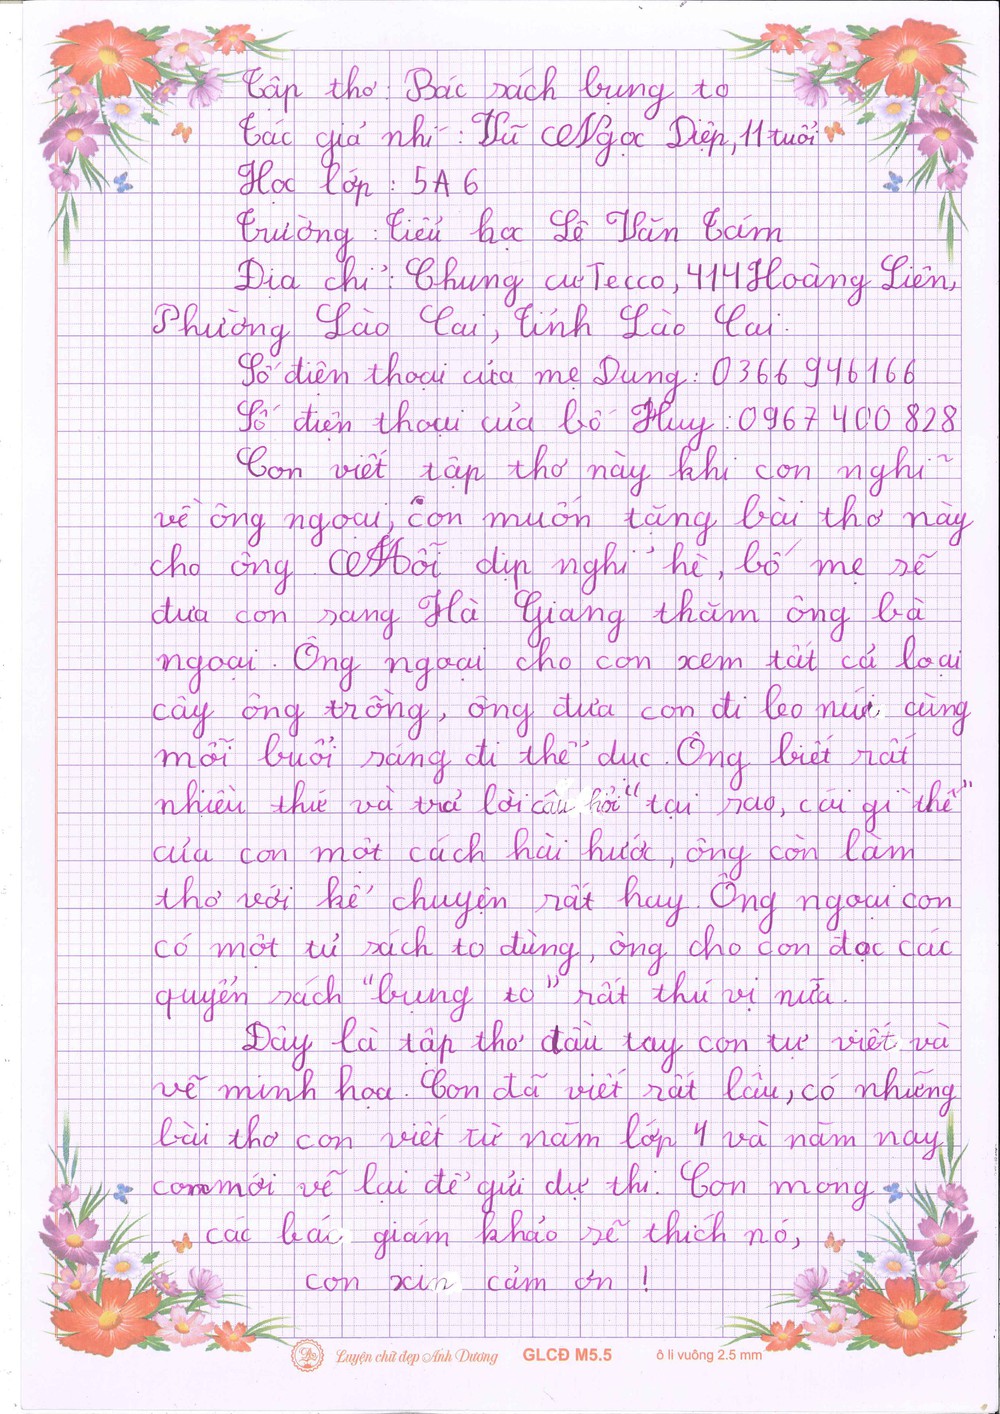 Tập thơ: Bác sách bụng to
Tác giả nhí: Vũ Ngọc Diệp, 11 tuổi
Học lớp: 5A6
Trường: Tiểu học Lê Văn Tám
Địa chỉ: Chung cư Tecco, 414 Hoàng Liên,
Phường Lào Cai, tỉnh Lào Cai.
Số điện thoại của mẹ Dung: 0366 946166
Số điện thoại của bố Huy: 0967 400 828
Con viết tập thơ này khi con nghĩ
về ông ngoại, con muốn tặng bài thơ này
cho ông. Mỗi dịp nghỉ hè, bố mẹ sẽ
đưa con sang Hà Giang thăm ông bà
ngoại. Ông ngoại cho con xem tất cả loại
cây ông trồng, ông đưa con đi leo núi cùng
mỗi buổi sáng đi thể dục. Ông biết rất
nhiều thứ và trả lời câu hỏi "tại sao, cái gì thế"
của con một cách hài hước, ông còn làm
thơ với kể chuyện rất hay. Ông ngoại con
có một tủ sách to đùng, ông cho con đọc các
quyển sách "bụng to" rất thú vị nữa.
Đây là tập thơ đầu tay con tự viết và
vẽ minh họa. Con đã viết rất lâu, có những
bài thơ con viết từ năm lớp 4 và năm nay
con mới vẽ lại để gửi dự thi. Con mong
các bác giám khảo sẽ thích nó,
con xin cảm ơn!
Luyện chữ đẹp Ánh Dương GLCĐ M5.5 ô li vuông 2.5 mm